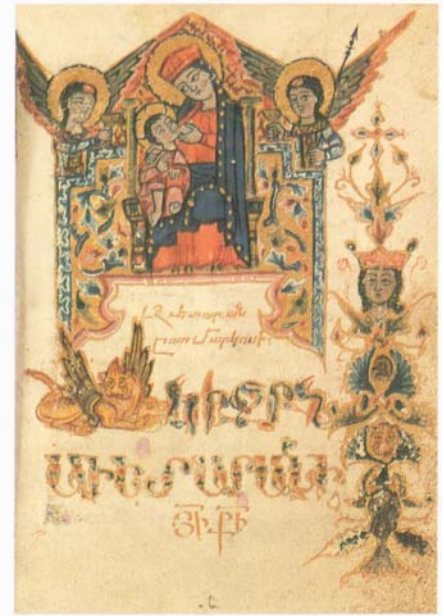 Աւետարան
ըստ Մարկոսի
ԿԻԶԲՆ
ԱՒԵՏԱՐԱՆԻ
ՅԻ ՔԻ